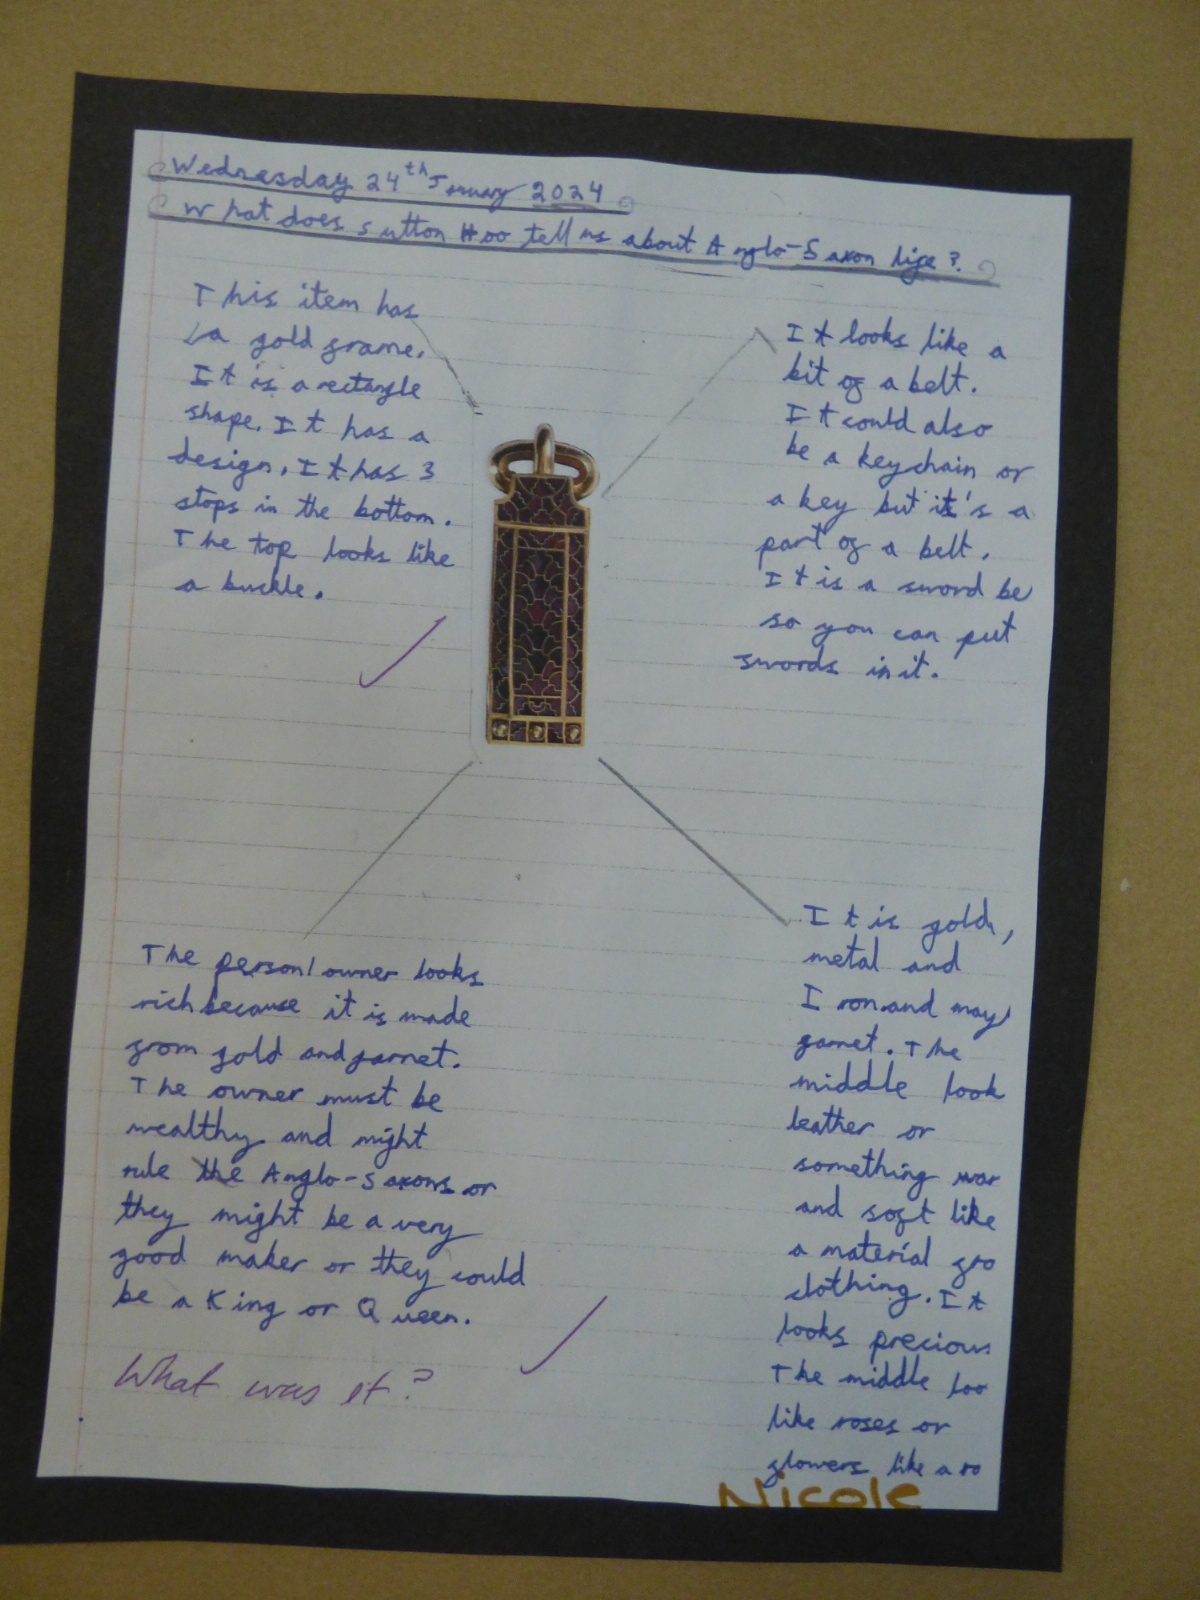 Wednesday 24th January 2024
What does Sutton Hoo tell us about Anglo-Saxon life?
This item has
a gold frame.
It is a rectangle
shape. It has a
design. It has 3
stops in the bottom.
The top looks like
a buckle.
It looks like a
bit of a belt.
It could also
be a keychain or
a key but it's a
part of a belt.
It is a sword be
so you can put
swords in it.
The person/owner looks
rich because it is made
from gold and garnet.
The owner must be
wealthy and might
rule the Anglo-Saxons or
they might be a very
good maker or they could
be a King or Queen.
What was it?
It is gold,
metal and
Iron.and may
garnet. The
middle look
leather or
something war
and soft like
a material fro
clothing. It
looks precious
The middle loo
like roses or
flowers like a ro
Nicole